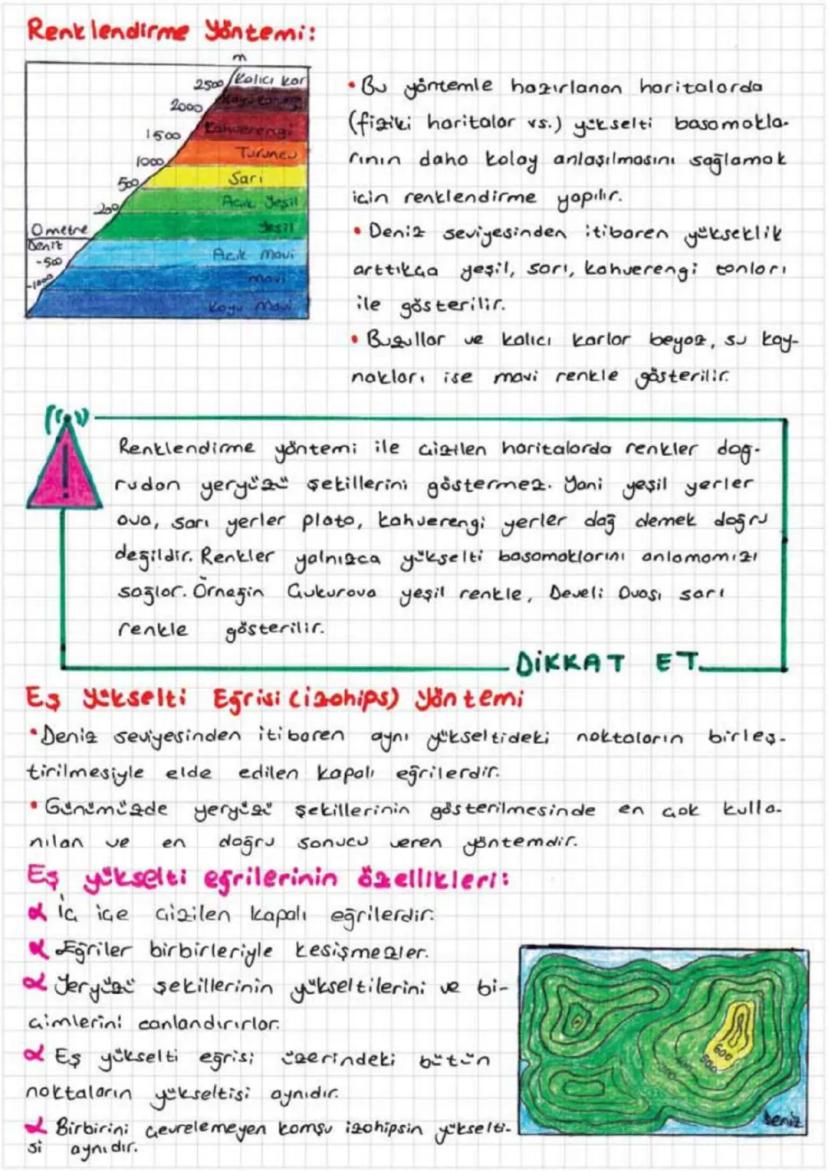 Renklendirme Yöntemi:
m
2500 Kalıcı kar
2000 Koyu kahve
1500 Kahverengi
1000 Turuncu
500 Sarı
200 Açık Yeşil
0 metre Yeşil
Deniz
-500 Açık Mavi
-1000 mavi
Koyu Mavi
• Bu yöntemle hazırlanan haritalarda
(fiziki haritalar vs.) yükselti basamakla-
rının daha kolay anlaşılmasını sağlamak
için renklendirme yapılır.
• Deniz seviyesinden itibaren yükseklik
arttıkça yeşil, sarı, kahverengi tonları
ile gösterilir.
• Buzullar ve kalıcı karlar beyaz, su kay-
nakları ise mavi renkle gösterilir.
!
Renklendirme yöntemi ile çizilen haritalarda renkler doğ-
rudan yeryüzü şekillerini göstermez. Yani yeşil yerler
ova, sarı yerler plato, kahverengi yerler dağ demek doğru
değildir. Renkler yalnızca yükselti basamaklarını anlamamızı
sağlar. Örneğin Çukurova yeşil renkle, Develi Ovası sarı
renkle gösterilir.
DİKKAT ET
Eş Yükselti Eğrisi (izohips) Yöntemi
• Deniz seviyesinden itibaren aynı yükseltideki noktaların birleş-
tirilmesiyle elde edilen kapalı eğrilerdir.
• Günümüzde yeryüzü şekillerinin gösterilmesinde en çok kulla-
nılan ve en doğru sonucu veren yöntemdir.
Eş yükselti eğrilerinin özellikleri:
İç içe çizilen kapalı eğrilerdir.
Eğriler birbirleriyle kesişmezler.
Yeryüzü şekillerinin yükseltilerini ve bi-
çimlerini canlandırırlar.
Eş yükselti eğrisi üzerindeki bütün
noktaların yükseltisi aynıdır.
Birbirini çevrelemeyen komşu izohipsin yükselti-
si aynıdır.
600
500
Deniz